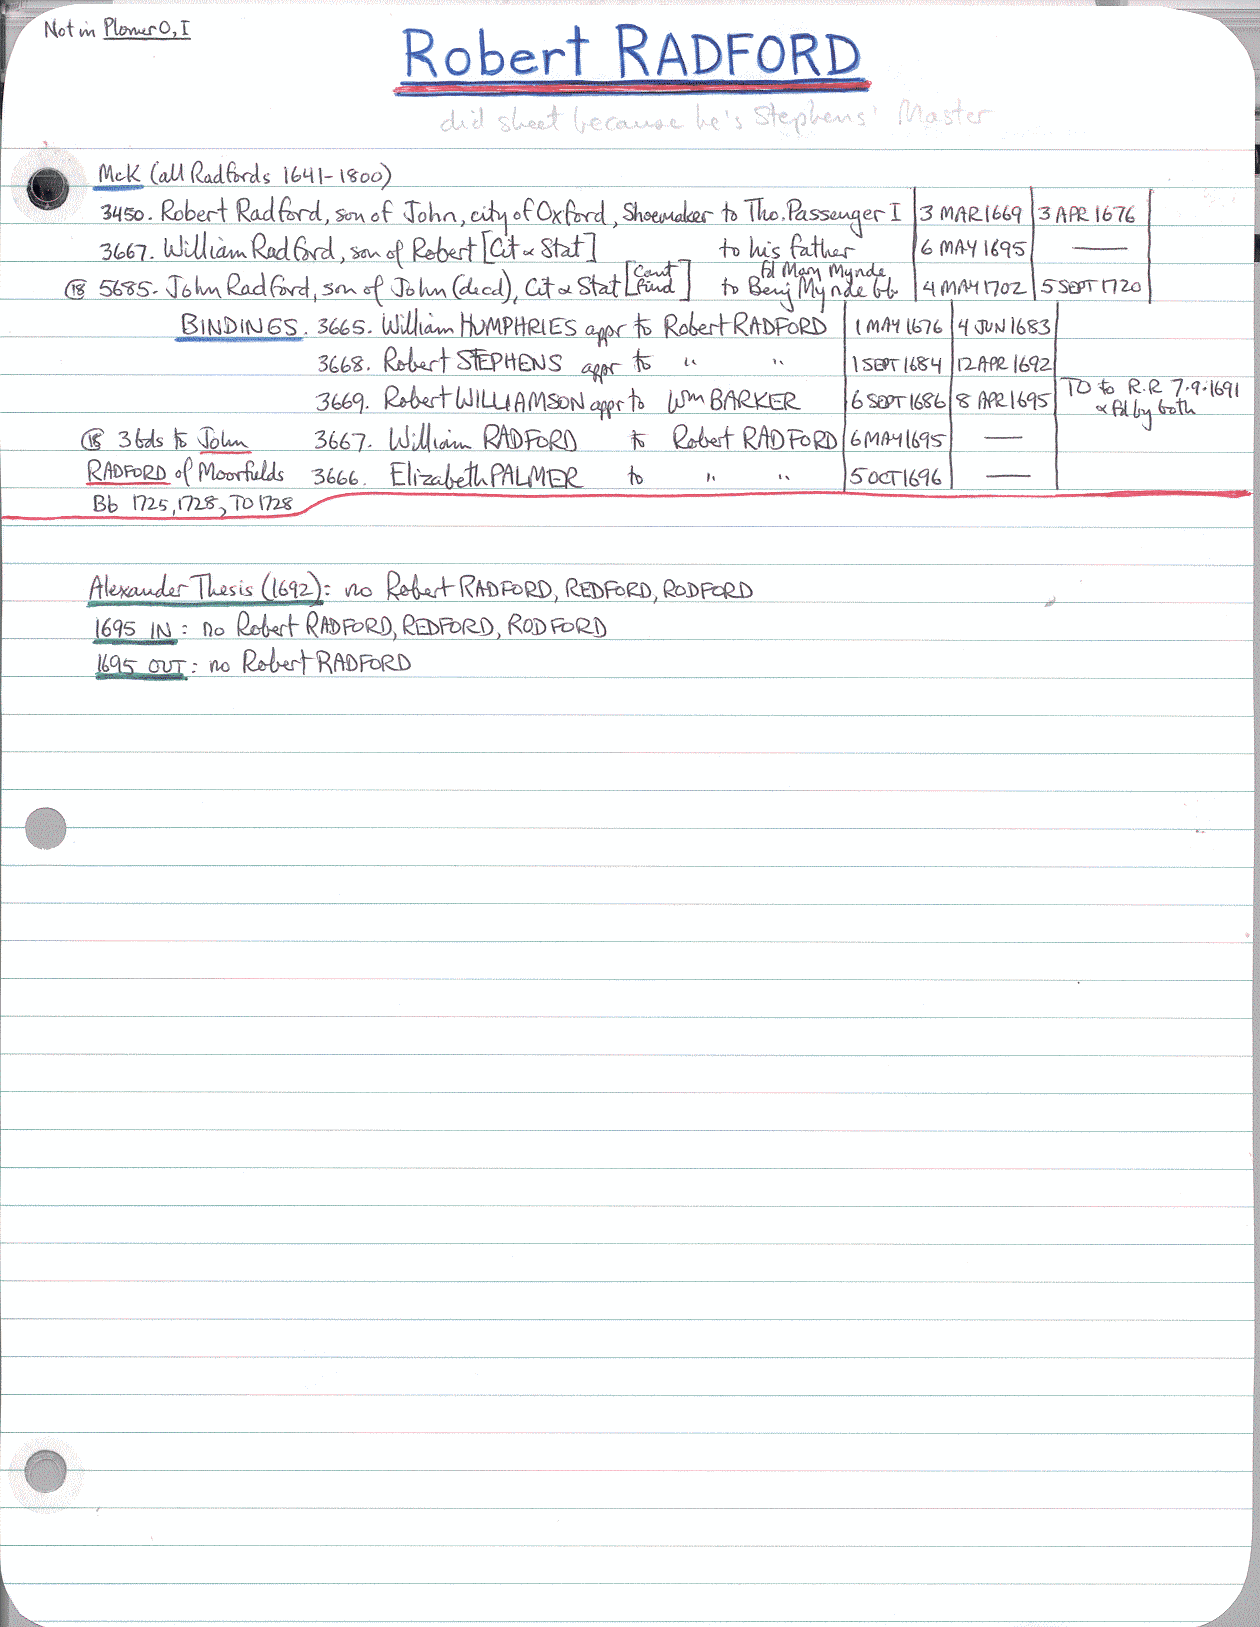 Not in Plomer O, I
Robert RADFORD
did sheet because he's Stephens' Master
McK (all Radfords 1641-1800)
3450. Robert Radford, son of John, city of Oxford, Shoemaker to Tho. Passenger I 3 MAR 1669 3 APR 1676
3667. William Radford, son of Robert [Cit & Stat] to his father 6 MAY 1695 —
⑱ 5685. John Radford, son of John (decd), Cit & Stat [Cant Find] to Benj Mynde bb fd Mary Mynde 4 MAY 1702 5 SEPT 1720
BINDINGS. 3665. William HUMPHRIES appr to Robert RADFORD 1 MAY 1676 4 JUN 1683
3668. Robert STEPHENS appr to " " 1 SEPT 1684 12 APR 1692
3669. Robert WILLIAMSON appr to Wm BARKER 6 SEPT 1686 8 APR 1695 TO to R.R 7.9.1691
& fd by both
⑱ 3 bds to John 3667. William RADFORD to Robert RADFORD 6 MAY 1695 —
RADFORD of Moorfields 3666. Elizabeth PALMER to " " 5 OCT 1696 —
Bb 1725, 1728, TO 1728
Alexander Thesis (1692): no Robert RADFORD, REDFORD, RODFORD
1695 IN: no Robert RADFORD, REDFORD, RODFORD
1695 OUT: no Robert RADFORD